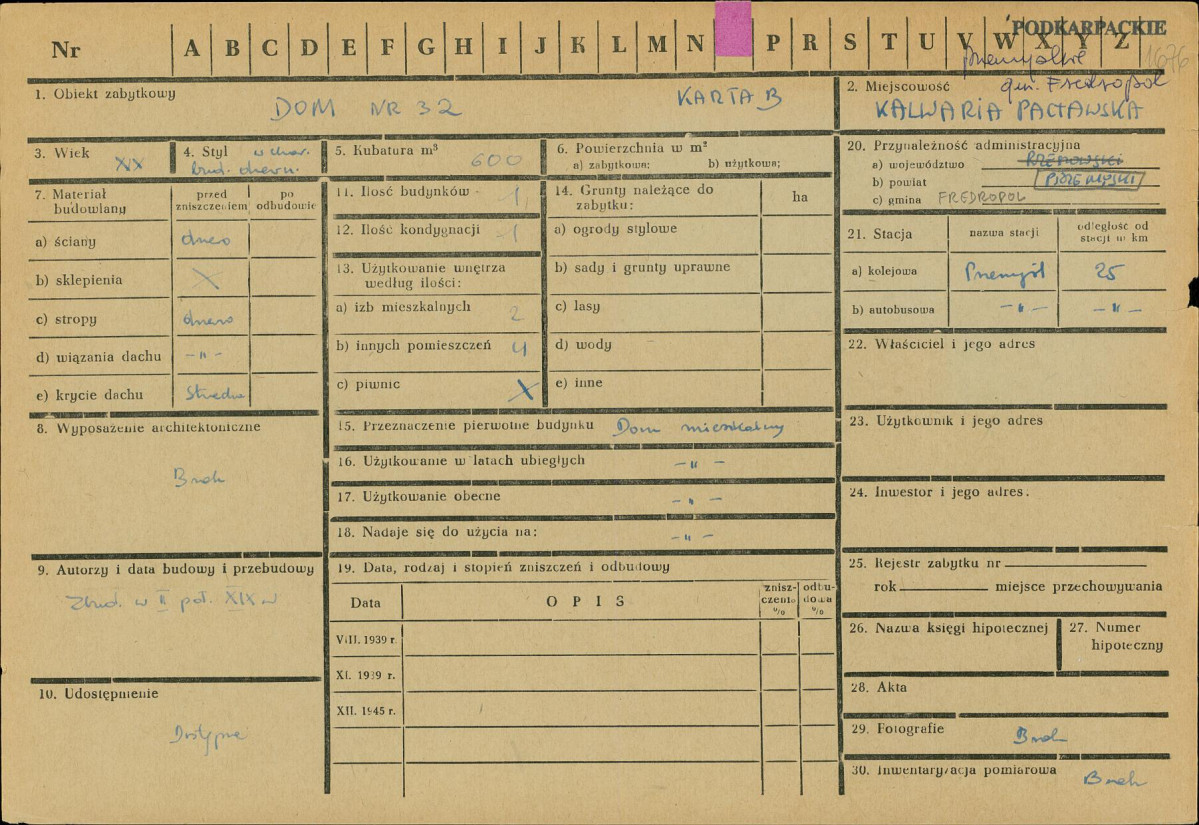 PODKARPACKIE
Nr A B C D E F G H I J K L M N P R S T U V W X Y Z
przemyskie
1676
gm. Fredropol
1. Obiekt zabytkowy
DOM NR 32 KARTA B
2. Miejscowość
KALWARIA PACŁAWSKA
3. Wiek
XX
4. Styl w char.
bud. drewn.
5. Kubatura m³
600
6. Powierzchnia w m²
a) zabytkowa: b) użytkowa;
7. Materiał budowlany
przed zniszczeniem
po odbudowie
a) ściany drewo
b) sklepienia X
c) stropy drewo
d) wiązania dachu -"-
e) krycie dachu Strzecha
8. Wyposażenie architektoniczne
Brak
9. Autorzy i data budowy i przebudowy
Zbud. w II poł. XIX w
10. Udostępnienie
Dostępne
11. Ilość budynków - 1
12. Ilość kondygnacji 1
13. Użytkowanie wnętrza
według ilości:
a) izb mieszkalnych 2
b) innych pomieszczeń 4
c) piwnic X
14. Grunty należące do
zabytku:
ha
a) ogrody stylowe
b) sady i grunty uprawne
c) lasy
d) wody
e) inne
15. Przeznaczenie pierwotne budynku Dom mieszkalny
16. Użytkowanie w latach ubiegłych -"-
17. Użytkowanie obecne -"-
18. Nadaje się do użycia na: -"-
19. Data, rodzaj i stopień zniszczeń i odbudowy
Data OPIS
znisz-
czenia
%
odbu-
dowa
%
VIII. 1939 r.
XI. 1939 r.
XII. 1945 r.
20. Przynależność administracyjna
a) województwo RZESZOWSKI
b) powiat PRZEMYSKI
c) gmina FREDROPOL
21. Stacja
nazwa stacji
odległość od
stacji w km
a) kolejowa Przemyśl 25
b) autobusowa -"- -"-
22. Właściciel i jego adres
23. Użytkownik i jego adres
24. Inwestor i jego adres.
25. Rejestr zabytku nr
rok miejsce przechowywania
26. Nazwa księgi hipotecznej
27. Numer
hipoteczny
28. Akta
29. Fotografie Brak
30. Inwentaryzacja pomiarowa Brak